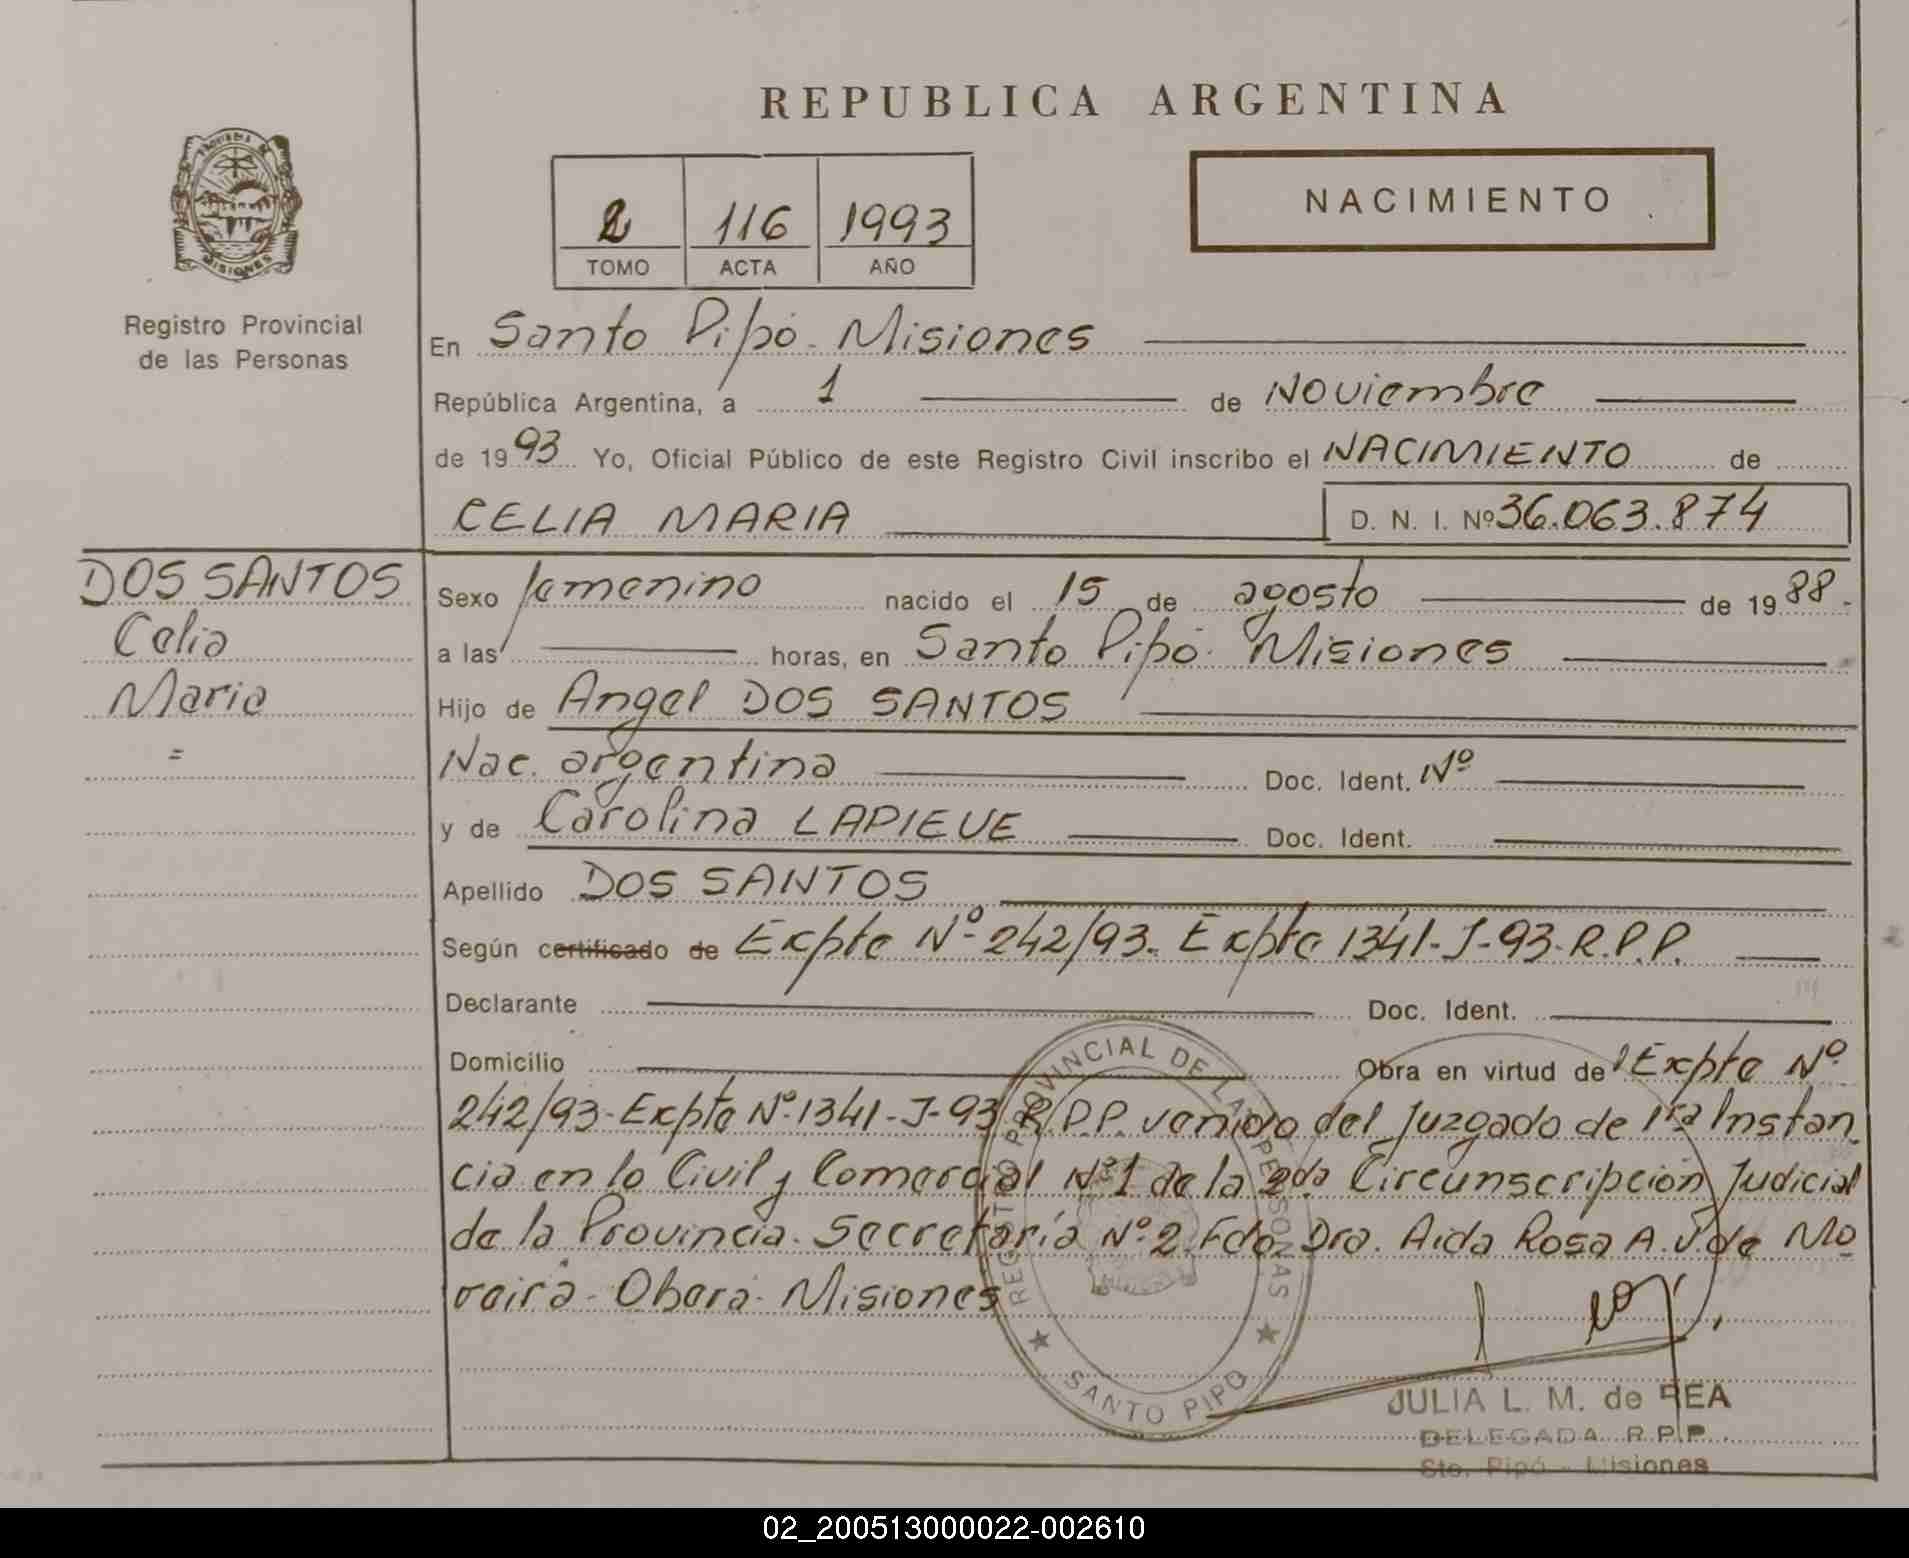 REPUBLICA ARGENTINA
PROVINCIA DE
MISIONES
Registro Provincial
de las Personas
2 116 1993
TOMO ACTA AÑO
NACIMIENTO
En Santo Pipó. Misiones
República Argentina, a 1 de Noviembre
de 1993 Yo, Oficial Público de este Registro Civil inscribo el NACIMIENTO de
CELIA MARIA D. N. I. Nº 36.063.874
DOS SANTOS
Celia
Maria
=
Sexo femenino nacido el 15 de agosto de 1988-
a las horas, en Santo Pipó. Misiones
Hijo de Angel DOS SANTOS
Nac. argentina Doc. Ident. Nº
y de Carolina LAPIEUE Doc. Ident.
Apellido DOS SANTOS
Según certificado de Expte Nº 242/93. Expte 1341-J-93-R.P.P.
Declarante Doc. Ident.
Domicilio Obra en virtud de Expte Nº
242/93-Expte Nº 1341-J-93 R.P.P. venido del Juzgado de 1ra Instan
cia en lo Civil y Comercial Nº 1 de la 2da Circunscripción Judicial
de la Provincia. Secretaría Nº 2. Fdo Dra. Aida Rosa A. de Mo
reira - Oberá - Misiones
REGISTRO PROVINCIAL DE LAS PERSONAS
SANTO PIPO
JULIA L. M. de REA
DELEGADA R.P.P.
Sto. Pipó - Misiones
02_200513000022-002610